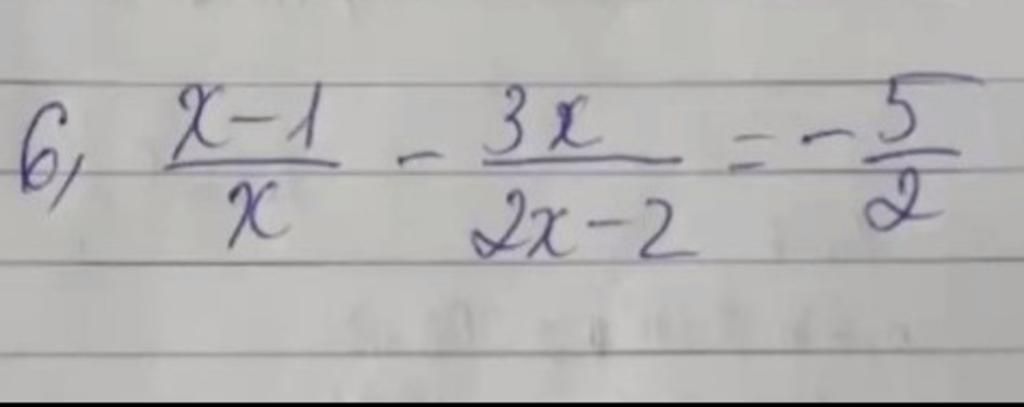 6, \frac{x-1}{x} - \frac{3x}{2x-2} = -\frac{5}{2}